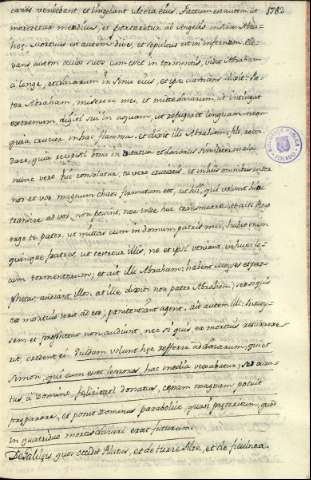 canes veniebant et lingebant ulcera eius, factum est autem ut 1782
moreretur mendicus, et portaretur ab Angelis in sinu Abra-
hæ. Mortuus est autem dives, et sepultus est in inferno. Ele-
vans autem oculos suos cum esset in tormentis, vidit Abraham
a longe, et Lazarum in sinu eius, et ipse clamans dixit: Pa-
ter Abraham, miserere mei, et mitte Lazarum, ut intingat
extremum digiti sui in aquam, ut refrigeret linguam meam
quia crucior in hac flamma, et dixit illi Abraham: fili, recor-
dare, quia recepisti bona in vita tua et Lazarus similiter mala
nunc vero hic consolatur, tu vero cruciaris, et in his omnibus inter
nos et vos magnum chaos firmatum est, ut hi, qui volunt hinc
transire ad vos, non possint, neque inde huc transmeare, et ait: Ro-
rogo te pater, ut mittas eum in domum patris mei, habeo enim
quinque fratres, ut testetur illis, ne et ipsi veniant in hunc lo-
cum tormentorum, et ait illi Abraham: habent moysen et pro-
phetas, audiant illos, at ille dixit: non pater Abraham, sed si quis
ex mortuis ierit ad eos, pœnitentiam agent, ait autem illi: si moy-
sem et prophetas non audiunt, neque si quis ex mortuis resurrexe-
rit, credent ei. quidam volunt hæc referre ad Lazarum,
Simon, qui cum esset leprosus
tus a Domino,
præparare, et potuit Dominus parabolice quasi
in quatriduo mortuus erat
De Galileis quos occidit Pilatus, et de turre Siloe, et de ficulnea.